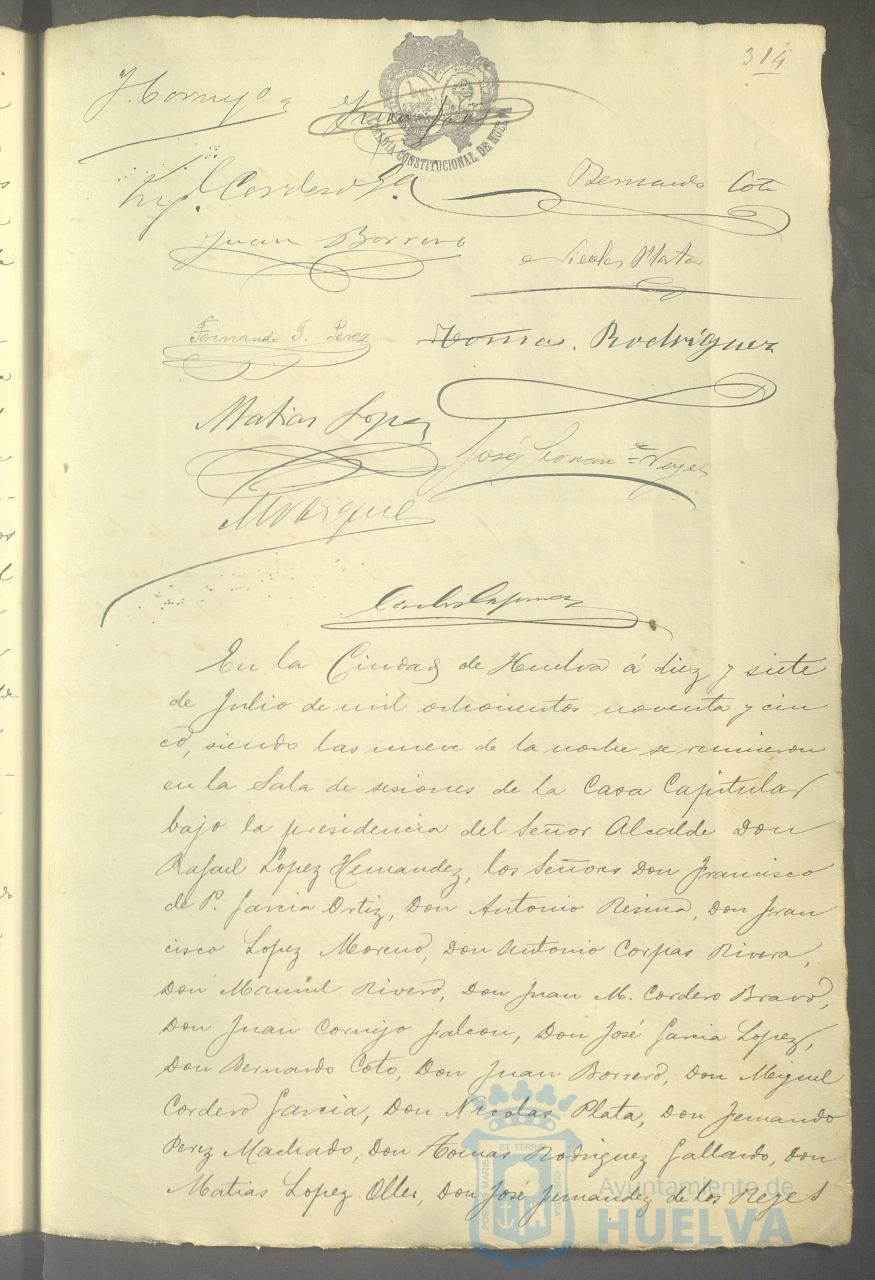 314
J. Cornejo
Juan
ALCALDIA CONSTITUCIONAL DE HUELVA
Mig.l Cordero Ga
Bernardo Coto
Juan Borrero
Nicolas Plata
Fernando P. Perez
Tomas Rodriguez
Matias Lopez
José Fernan.z Reyes
M Vazquez
En la Ciudad de Huelva á diez y siete
de Julio de mil ochocientos noventa y cin
co, siendo las nueve de la noche se reunieron
en la Sala de sesiones de la Casa Capitular
bajo la presidencia del Señor Alcalde Don
Rafael Lopez Hernandez, los Señores Don Francisco
de P. Garcia Ortiz, Don Antonio Resina, Don Fran
cisco Lopez Moreno, Don Antonio Corpas Rivera,
Don Manuel Rivero, Don Juan M. Cordero Bravo,
Don Juan Cornejo Falcon, Don José Garcia Lopez,
Don Bernardo Coto, Don Juan Borrero, Don Miguel
Cordero Garcia, Don Nicolas Plata, Don Fernando
Perez Machado, Don Tomas Rodriguez Gallardo, Don
Matias Lopez Oller, Don José Fernandez de los Reyes
PORTUS MARIS ET TERRE CUSTODIA
Ayuntamiento de
HUELVA